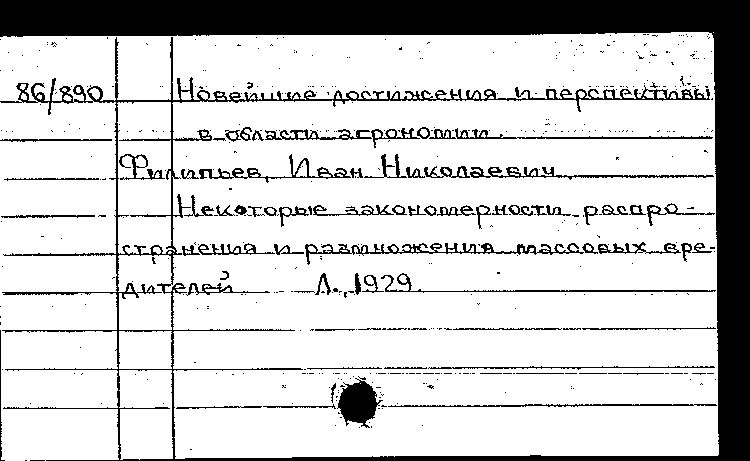 86/890 Новейшие достижения и перспективы
в области агрономии.
Филипьев, Иван Николаевич.
Некоторые закономерности распро-
странения и размножения массовых вре-
дителей Л., 1929.